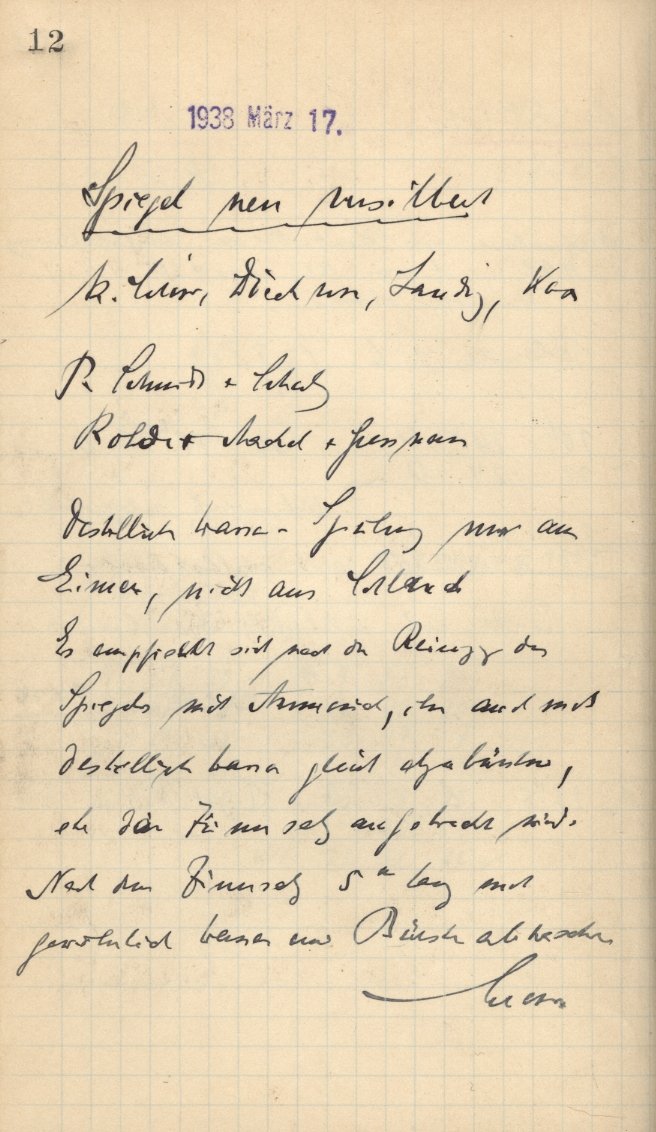 12
1938 März 17.
Spiegel neu versilbert
K. Schürer, Dieckvoss, Landig,
P. Schmidt + Schulz
+ + Gussmann
Destilliert Wasser - Spülung nur aus
Eimer, nicht aus Schlauch
Es empfiehlt sich nach der Reinigung des
Spiegels mit Ammoniak, ihn auch mit
destilliert Wasser gleich abzubürsten,
ehe das Zinnsalz aufgebracht wird.
Nach dem Zinnsalz 5 m lang mit
gewöhnlich Wasser und Bürste abwaschen